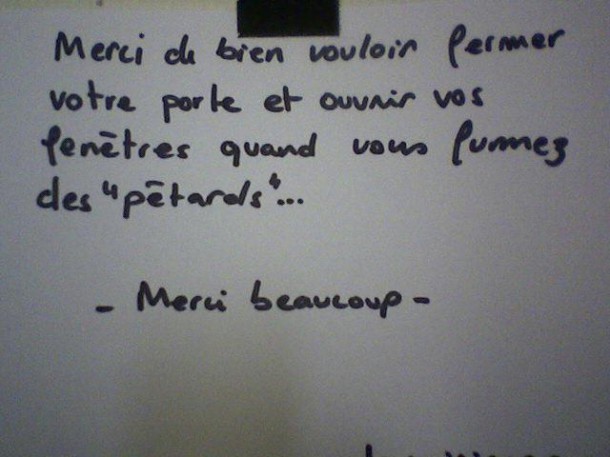 Merci de bien vouloir fermer
votre porte et ouvrir vos
fenêtres quand vous fumez
des "pêtards"...
- Merci beaucoup -